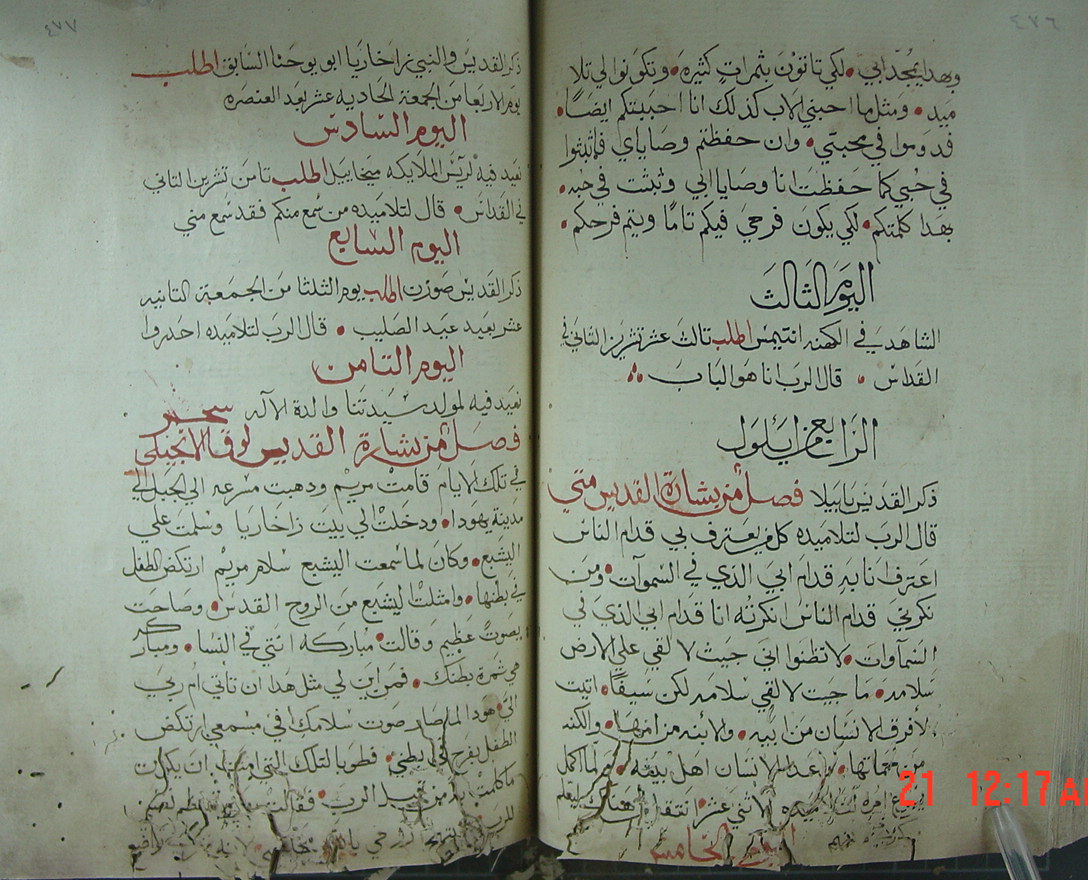 ٤٧٦
وبهدا يمجد ابي • لكي تاتون بثمرات كثيره • وتكونوا لي تلا
ميد • ومثل ما احبني الاب كذلك انا احببتكم ايضًا •
فدوموا في محبتي • وان حفظتم وصاياي فاثبتوا
في حبي كما حفظت انا وصايا ابي وثبثت في حبه •
بهدا كلمتكم • لكي يكون فرحي فيكم تامًا ويتم فرحكم •
اليوم الثالث
الشاهد في الكهنه انتيمس اطلب تالث عشر تشرين الثاني في
القداس • قال الرب انا هو الباب
الرابع من ايلول
ذكر القديس بابيلا فصل من بشارة القديس متي
قال الرب لتلاميده كل من يعترف بي قدام الناس
اعترف انا به قدام ابي الذي في السموات • ومن
نكرني قدام الناس انكرته انا قدام ابي الذي في
السماوات • لا تظنوا اني جيت لالقي علي الارض
سلامه • ما جيت لالقي سلامه لكن سيفًا • اتيت
لافرق الانسان من ابيه • والابنه من امها • والكنه
من حماتها • واعدا الانسان اهل بيته • ولما اكمل
يسوع امره تلاميده الاثني عشر • انتقل من هناك ليعلم
اليوم الخامس
٤٧٧
ذكر القديس والنبي زاخاريا ابو يوحنا السابق اطلب
يوم الاربعا من الجمعة الحاديه عشر بعد العنصره
اليوم السادس
نعيد فيه لرئيس الملايكه ميخاييل اطلب تامن تشرين التاني
في القداس • قال لتلاميده من سمع منكم فقد سمع مني
اليوم السابع
ذكر القديس صوزن اطلب يوم الثلثا من الجمعة التانيه
عشر بعيد عيد الصليب • قال الرب لتلاميده احدروا
اليوم التامن
نعيد فيه لمولد سيدتنا والدة الاله سحر
فصل من بشارة القديس لوقا الانجيلي
في تلك الايام قامت مريم ودهبت مسرعه الي الجبل الي
مدينة يهودا • ودخلت الي بيت زاخاريا وسلمت علي
اليشبع • وكان لما سمعت اليشبع سلام مريم ارتكض الطفل
في بطنها • وامتلت ليشبع من الروح القدس • وصاحت
بصوت عظيم وقالت • مباركه انتي في النسا • ومبار
كه
هي ثمرة بطنك • فمن اين لي مثل هذا ان تاتي ام ربي
الي • هودا لما صار صوت سلامك في مسمعي ارتكض
الطفل بفرح في بطني • فطوبا لتلك التي امنت ان يكون
ما كلمت به من قبل الرب • فقالت مريم تعظم نفسي
للرب